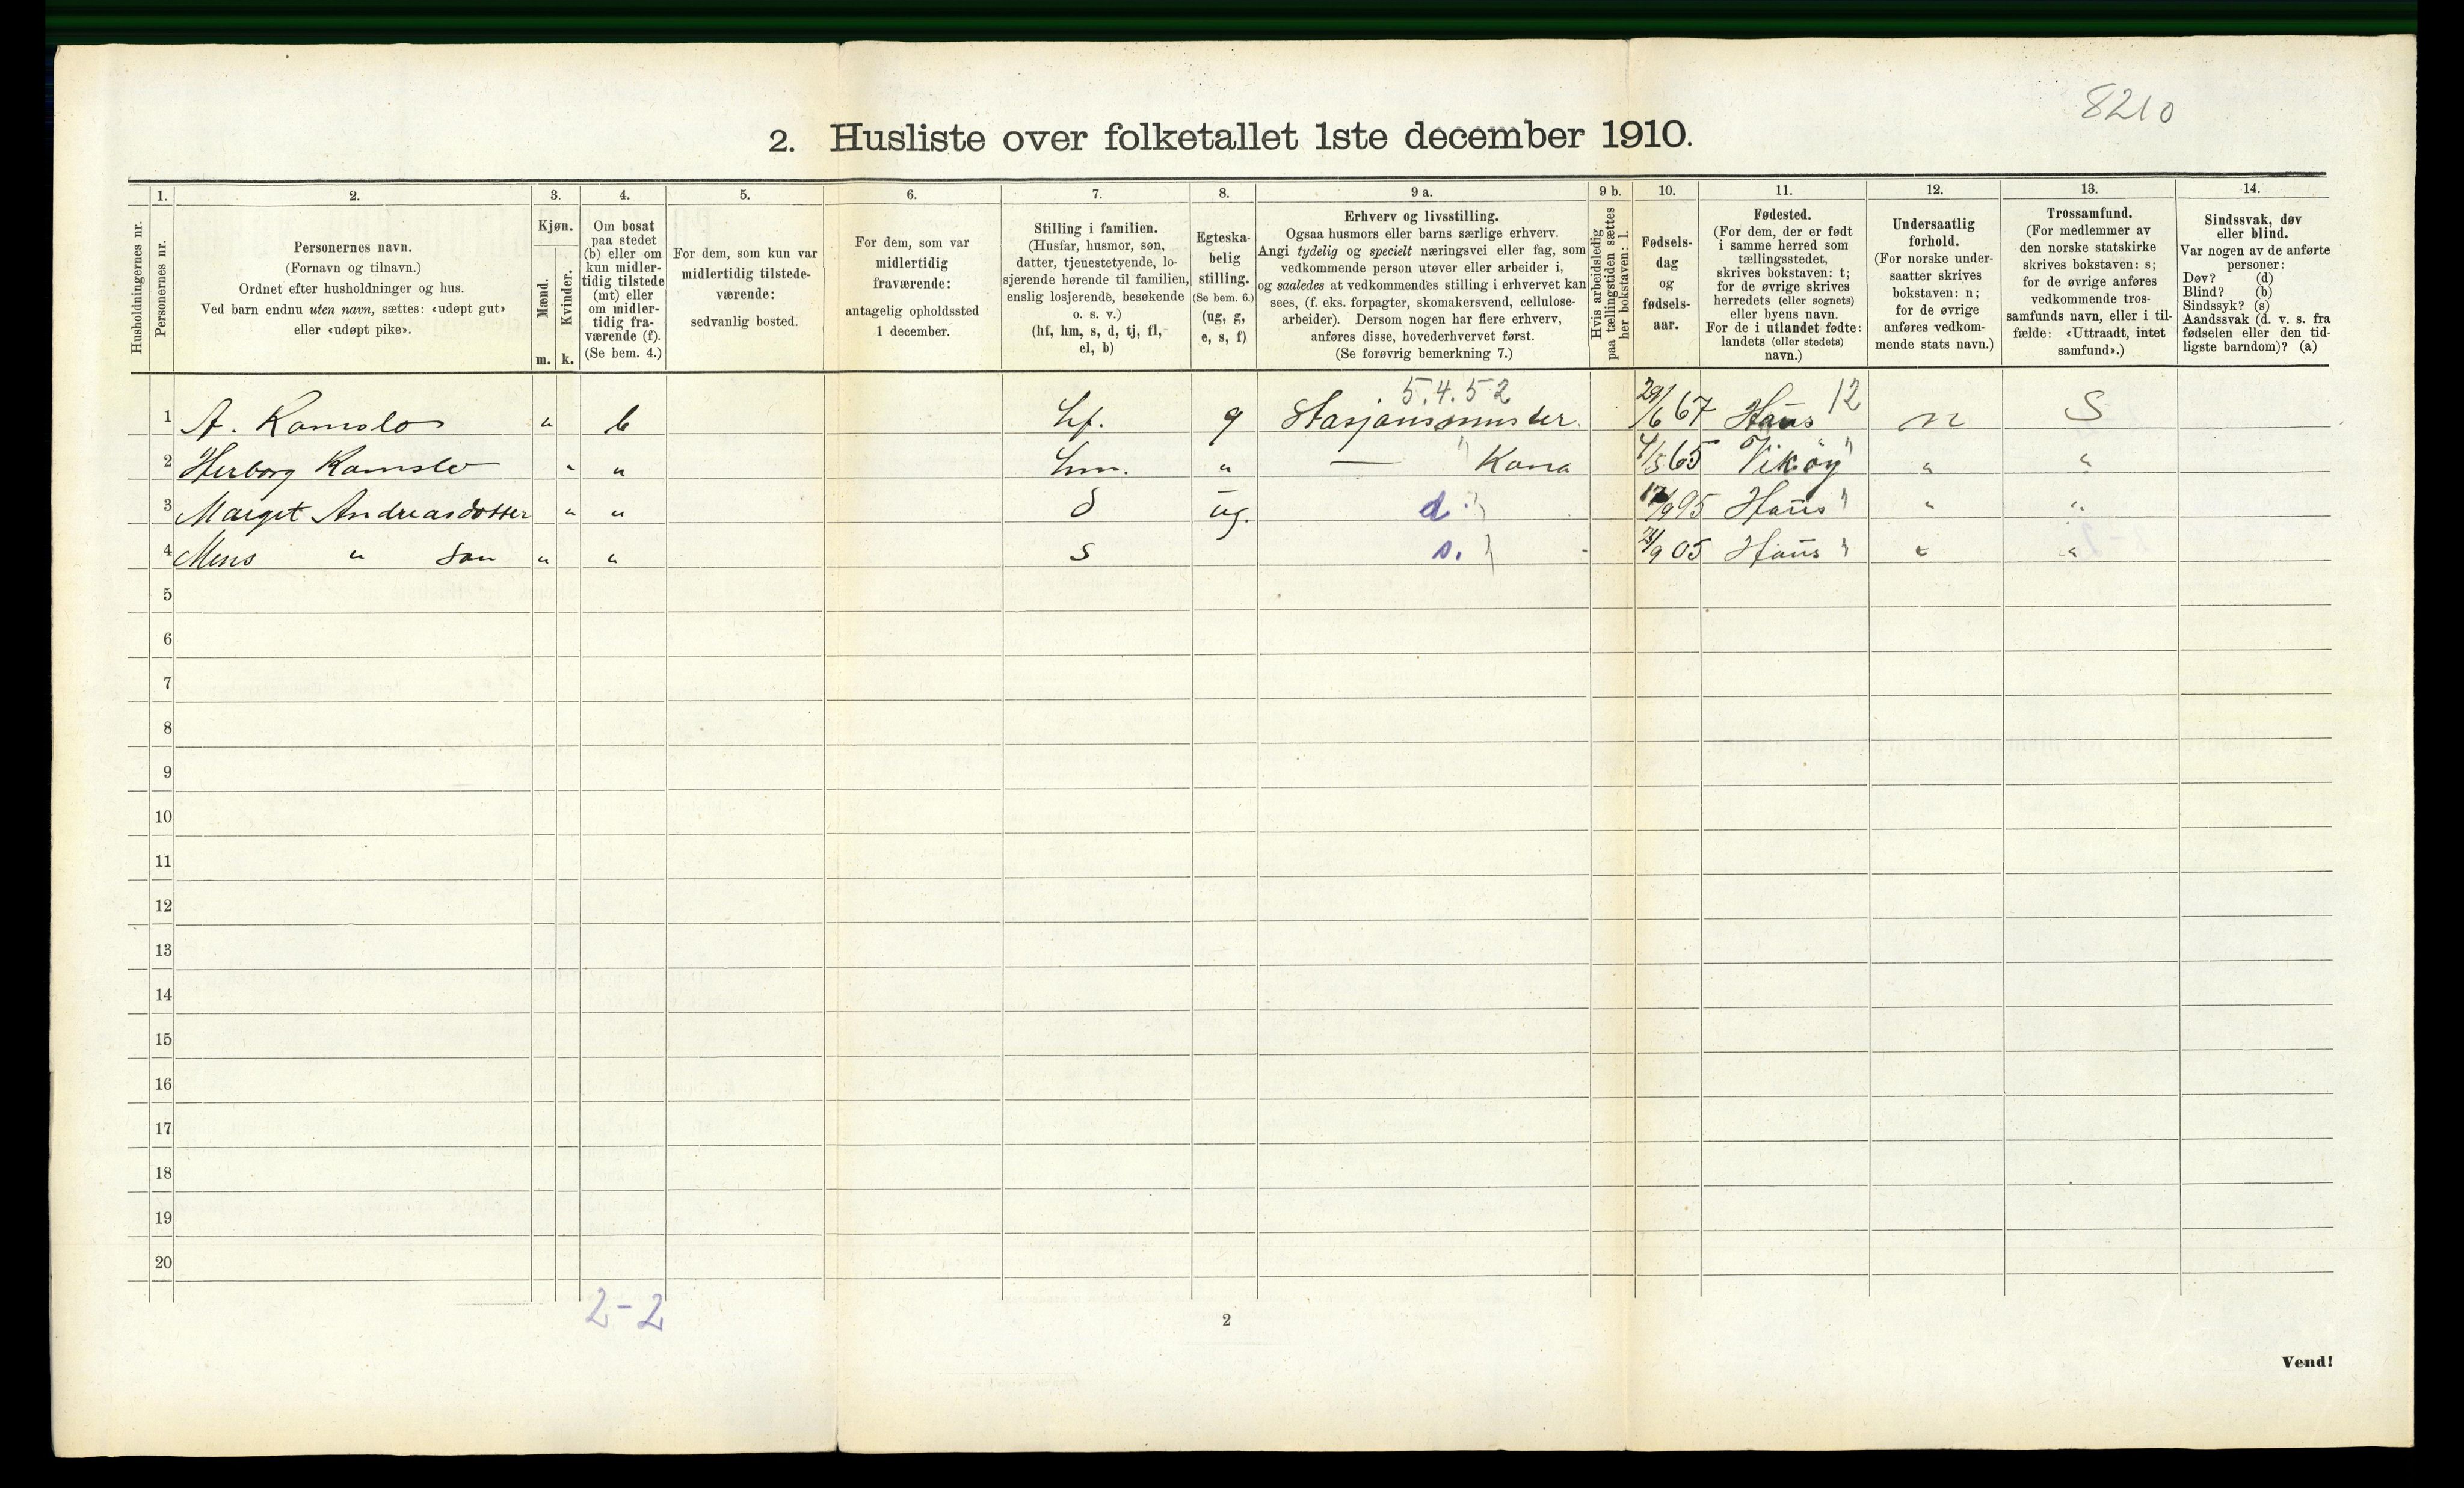 8210
2. Husliste over folketallet 1ste december 1910.
Husholdningernes nr.
1.
Personernes nr.
2.
Personernes navn.
(Fornavn og tilnavn.)
Ordnet efter husholdninger og hus.
Ved barn endnu uten navn, sættes: «udøpt gut»
eller «udøpt pike».
3.
Kjøn.
Mænd.
m.
Kvinder.
k.
4.
Om bosat
paa stedet
(b) eller om
kun midler-
tidig tilstede
(mt) eller
om midler-
tidig fra-
værende (f).
(Se bem. 4.)
5.
For dem, som kun var
midlertidig tilstede-
værende:
sedvanlig bosted.
6.
For dem, som var
midlertidig
fraværende:
antagelig opholdssted
1 december.
7.
Stilling i familien.
(Husfar, husmor, søn,
datter, tjenestetyende, lo-
sjerende hørende til familien,
enslig losjerende, besøkende
o. s. v.)
(hf, hm, s, d, tj, fl,
el, b)
8.
Egteska-
belig
stilling.
(Se bem. 6.)
(ug, g,
e, s, f)
9 a.
Erhverv og livsstilling.
Ogsaa husmors eller barns særlige erhverv.
Angi tydelig og specielt næringsvei eller fag, som
vedkommende person utøver eller arbeider i,
og saaledes at vedkommendes stilling i erhvervet kan
sees, (f. eks. forpagter, skomakersvend, cellulose-
arbeider). Dersom nogen har flere erhverv,
anføres disse, hovederhvervet først.
(Se forøvrig bemerkning 7.)
9 b.
Hvis arbeidsledig
paa tællingstiden sættes
her bokstaven: l.
10.
Fødsels-
dag
og
fødsels-
aar.
11.
Fødested.
(For dem, der er født
i samme herred som
tællingsstedet,
skrives bokstaven: t;
for de øvrige skrives
herredets (eller sognets)
eller byens navn.
For de i utlandet fødte:
landets (eller stedets)
navn.)
12.
Undersaatlig
forhold.
(For norske under-
saatter skrives
bokstaven: n;
for de øvrige
anføres vedkom-
mende stats navn.)
13.
Trossamfund.
(For medlemmer av
den norske statskirke
skrives bokstaven: s;
for de øvrige anføres
vedkommende tros-
samfunds navn, eller i til-
fælde: «Uttraadt, intet
samfund».)
14.
Sindssvak, døv
eller blind.
Var nogen av de anførte
personer:
Døv? (d)
Blind? (b)
Sindssyk? (s)
Aandssvak (d. v. s. fra
fødselen eller den tid-
ligste barndom)? (a)
5.4.52
1 A. Ramslo " b hf. g Stasjonsmester. 29/6 67 Haus 12 n S
2 Herborg Ramslo " " hm. " — " Kona 4/5 65 Vikøy " "
3 Marget Andreasdotter " " d ug. d. 17/9 95 Haus " "
4 Mons " son " " s s. 21/9 05 Haus " "
5
6
7
8
9
10
11
12
13
14
15
16
17
18
19
20
2-2
2
Vend!